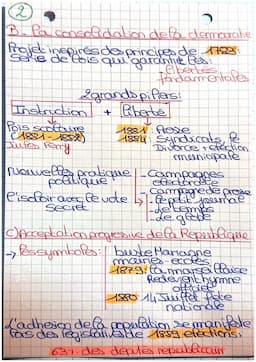 2
B - La consolidation de la démocratie
Projet inspirés des principes de 1789:
Série de lois qui garantit les:
libertés
fondamentales
2 grands piliers:
Instruction + Liberté
Lois scolaire 1881 Presse
(1881-1882) 1884 Syndicats, le
Jules Ferry Divorce + élection
municipale
Nouvelles pratique - Campagnes
politique électorale
- campagne de presse
L'isoloir avec le vote - le petit journal
secret
- de grève
C) Acceptation progressive de la République
→ Les symboles: buste Marianne
mairies - écoles
1879: La marseillaise
Redevient hymne
officiel
1880 14 Juillet fête
nationale
L'adhésion de la population se manifeste
lors des législatives de 1889 élections:
des députés républicain